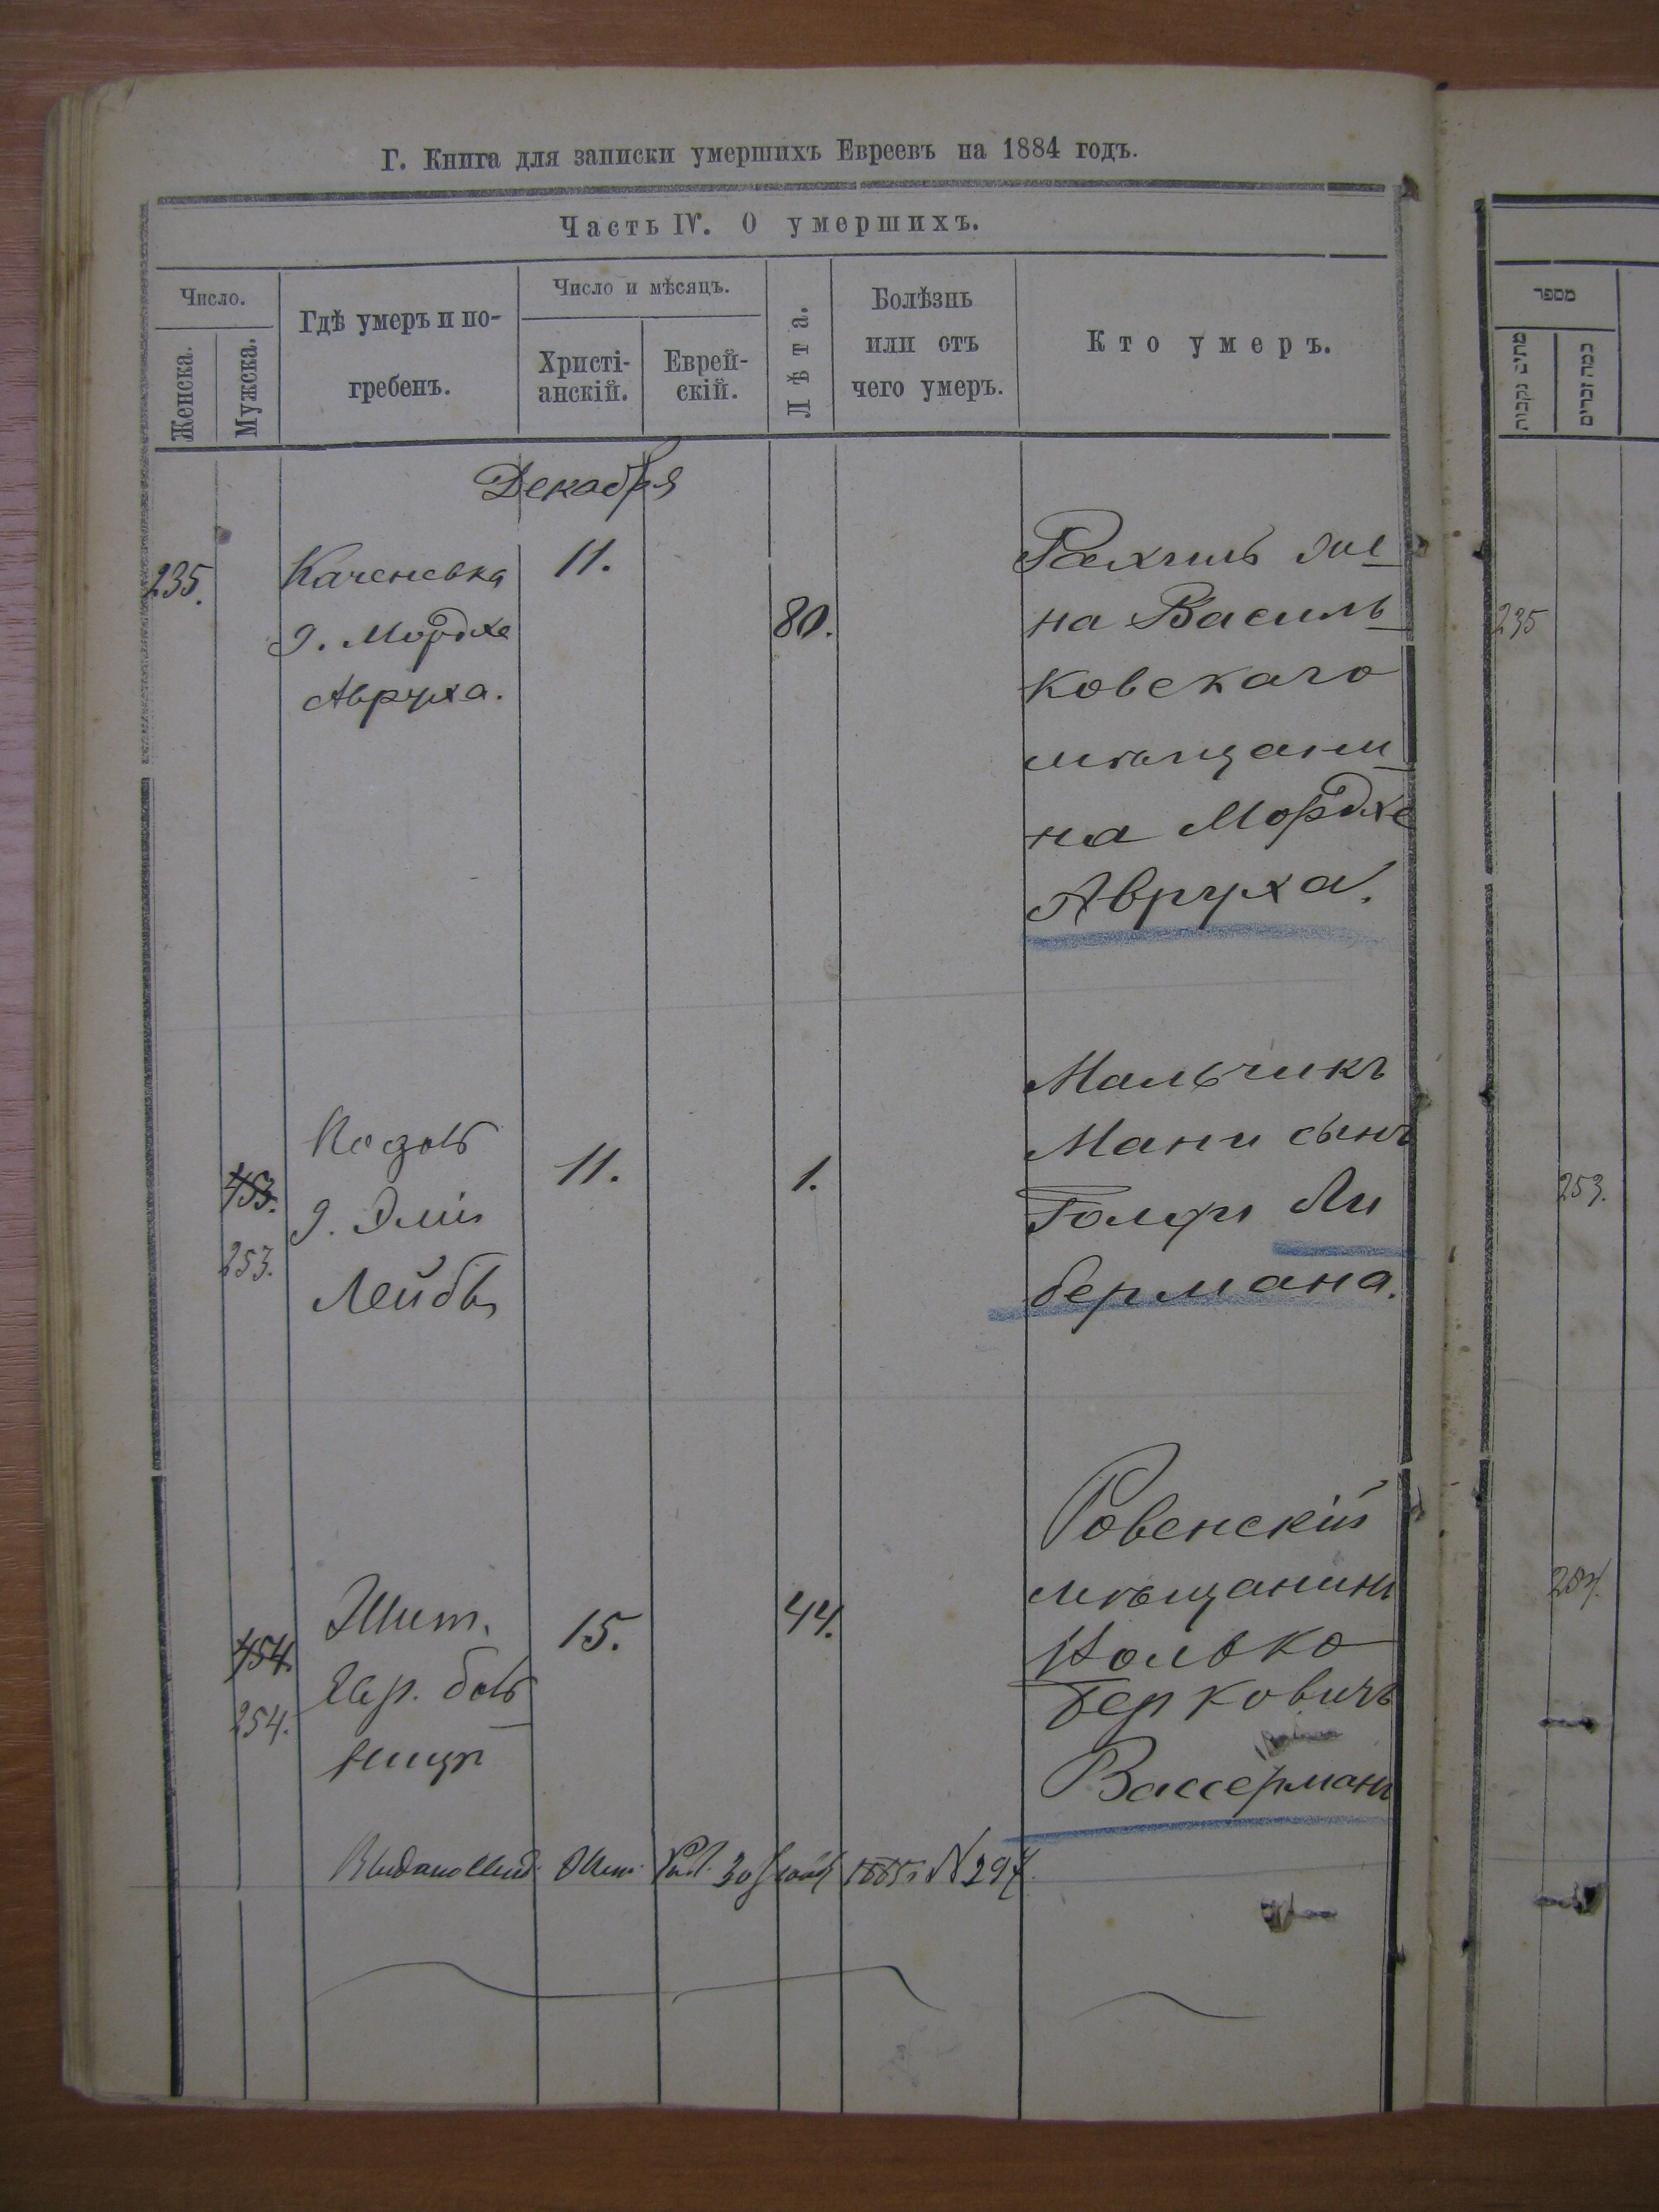 Г. Книга для записки умершихъ Евреевъ на 1884 годъ.
Часть IV. О умершихъ.
Число.
Женска.
Мужска.
Гдѣ умеръ и по-
гребенъ.
Число и мѣсяцъ.
Христі-
анскій.
Еврей-
скій.
Лѣта.
Болѣзнь
или отъ
чего умеръ.
Кто умеръ.
Декабря
235.
Каченовка
д. Мордхе
Авруха.
11.
80.
Рахиль же
на Василь
ковскаго
мѣщани
на Мордхе
Авруха.
453.
253.
д.
Лейбы
11.
1.
Мальчикъ
Мани сынъ
Ли
бермана.
454.
254.
Жит.
Евр. боль
ница
15.
44.
Ровенскій
мѣщанинъ
Берковичъ
Вассерманъ
30
1885 г. № 297.
מספר
מתים נקבות
כמה זכרים
235
253.
254.